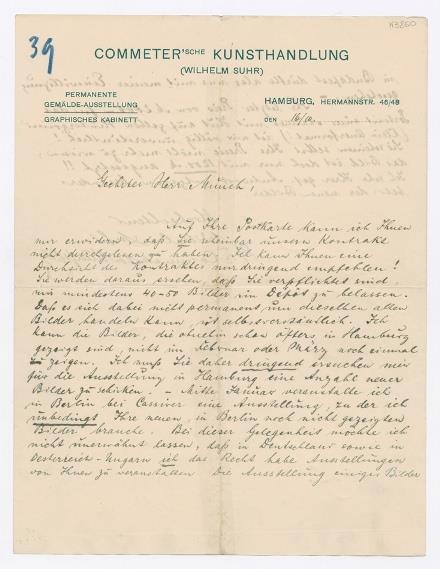 N3200
39
COMMETER'SCHE KUNSTHANDLUNG
(WILHELM SUHR)
PERMANENTE
GEMÄLDE-AUSSTELLUNG
GRAPHISCHES KABINETT
HAMBURG, HERMANNSTR. 46/48
DEN
Geehrter Herr Munch!
Auf Ihre Postkarte kann ich Ihnen
nur erwidern, daß Sie scheinbar unsern Kontrakt
nicht durchgelesen zu haben. Ich kann Ihnen eine
Durchsicht des Kontraktes nur dringend empfehlen!
Sie werden daraus ersehen, daß Sie verpflichtet sind,
mir mindestens 40-50 Bilder in Depôt zu belassen.
Daß es sich dabei nicht permanent um dieselben alten
Bilder handeln kann, ist selbstverständlich. Ich
kann die Bilder, die ohnehin schon öfters in Hamburg
gezeigt sind, nicht im Februar oder März noch einmal
zeigen. Ich muß Sie daher dringend ersuchen mir
für die Ausstellung in Hamburg eine Anzahl neuer
Bilder zu schicken. Mitte Januar veranstalte ich
zu Berlin bei Cassirer eine Ausstellung, zu der ich
unbedingt Ihre neuen, in Berlin noch nicht gezeigten
Bilder brauche. Bei dieser Gelegenheit möchte ich
nicht unerwähnt lassen, daß in Deutschland sowie in
Oesterreich-Ungarn ich das Recht habe Ausstellungen
von Ihnen zu veranstalten. Die Ausstellung einiger Bilder